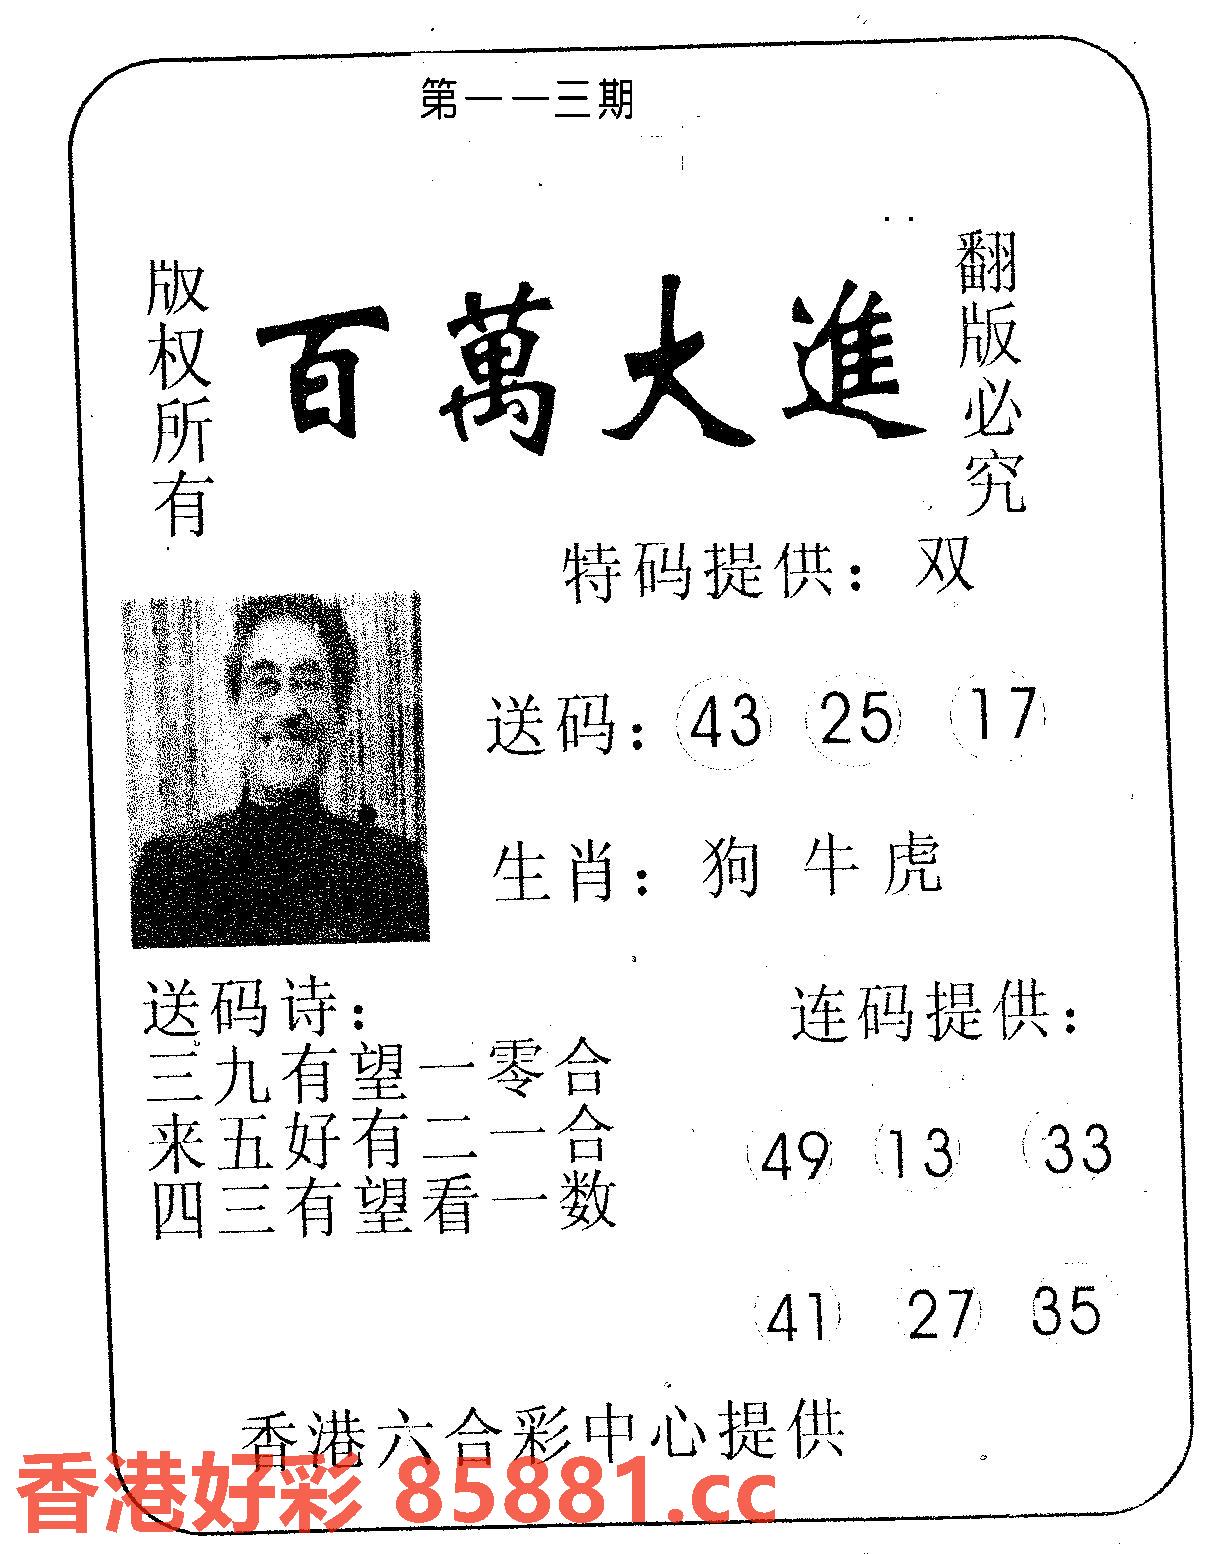 第一一三期
版权所有
百萬大進
翻版必究
特码提供：双
送码：43 25 17
生肖：狗 牛 虎
送码诗：
三九有望一零合
来五好有二一合
四三有望看一数
连码提供：
49 13 33
41 27 35
香港六合彩中心提供
香港好彩 85881.cc